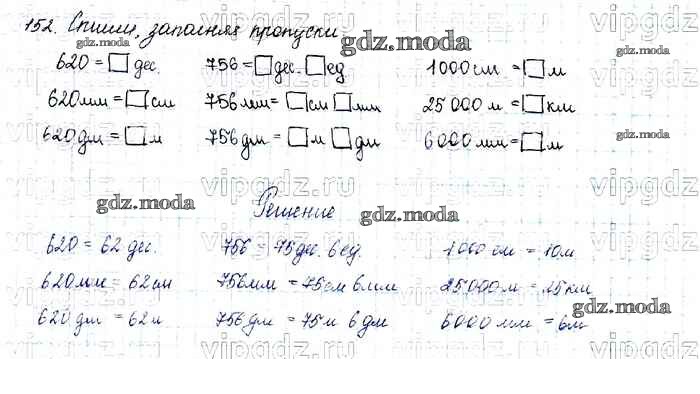 152. Спиши, заполняя пропуски
620 = □ дес. 756 = □ дес. □ ед 1000 см = □ м
620 мм = □ см 756 мм = □ см □ мм 25 000 м = □ км
620 дм = □ м 756 дм = □ м □ дм 6000 мм = □ м
Решение
620 = 62 дес. 756 = 75 дес. 6 ед. 1000 см = 10 м
620 мм = 62 см 756 мм = 75 см 6 мм 25000 м = 25 км
620 дм = 62 м 756 дм = 75 м 6 дм 6000 мм = 6 м
gdz.moda
gdz.moda
gdz.moda
gdz.moda
gdz.moda
gdz.moda
gdz.moda
vipgdz.ru